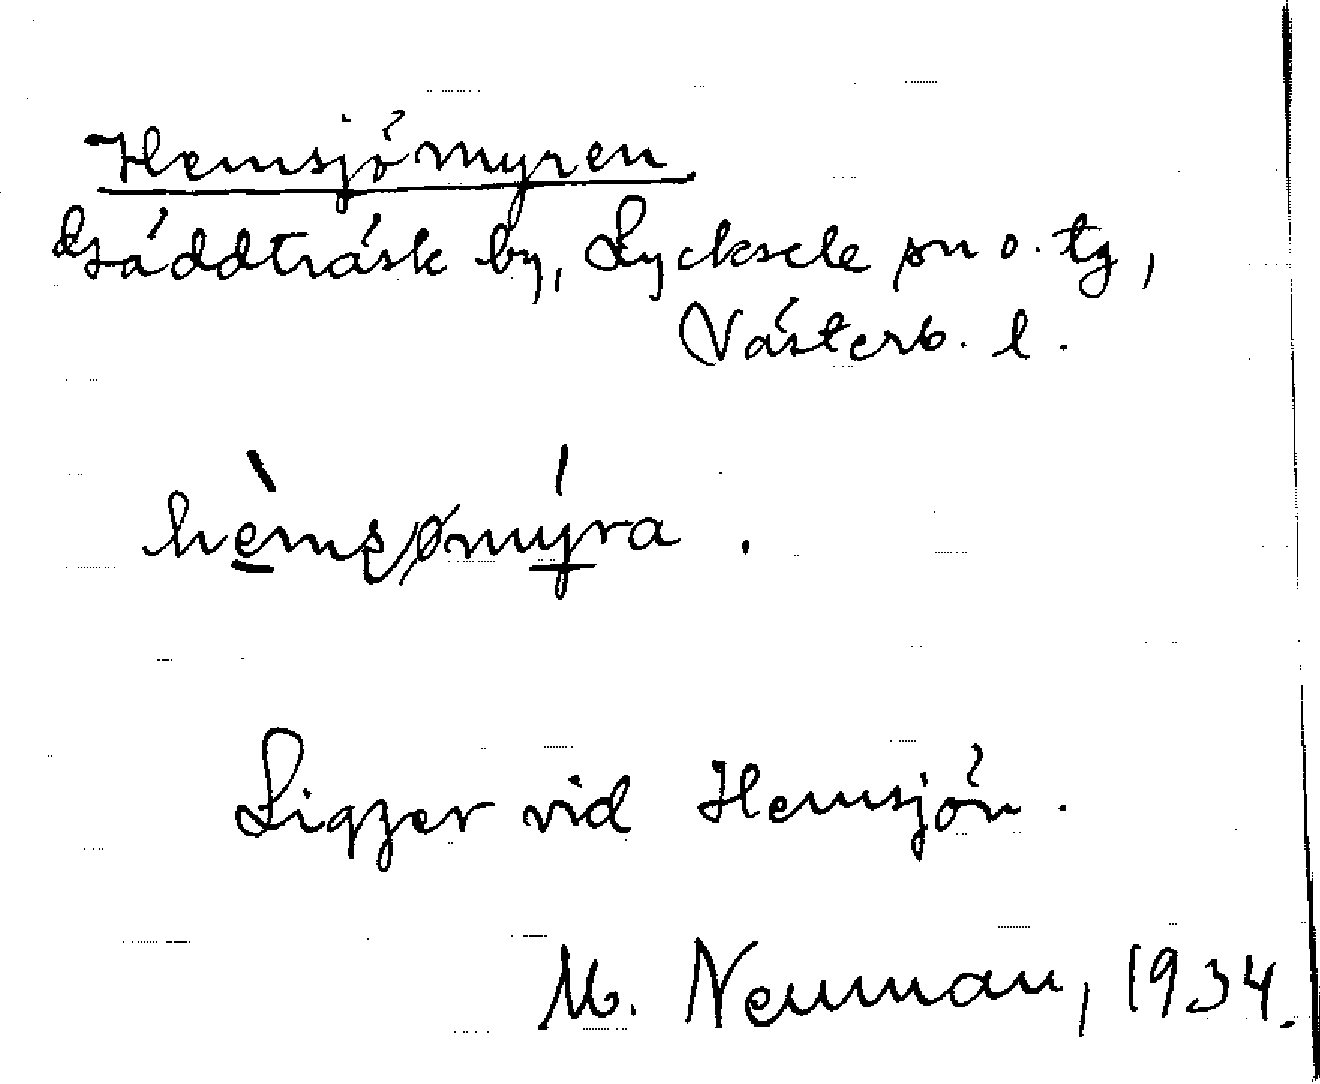 Hemsjömyren
Gräddträsk by, Lycksele sn o. tg,
Västerb. l.
Ligger vid Hemsjön.
M. Neuman, 1934.